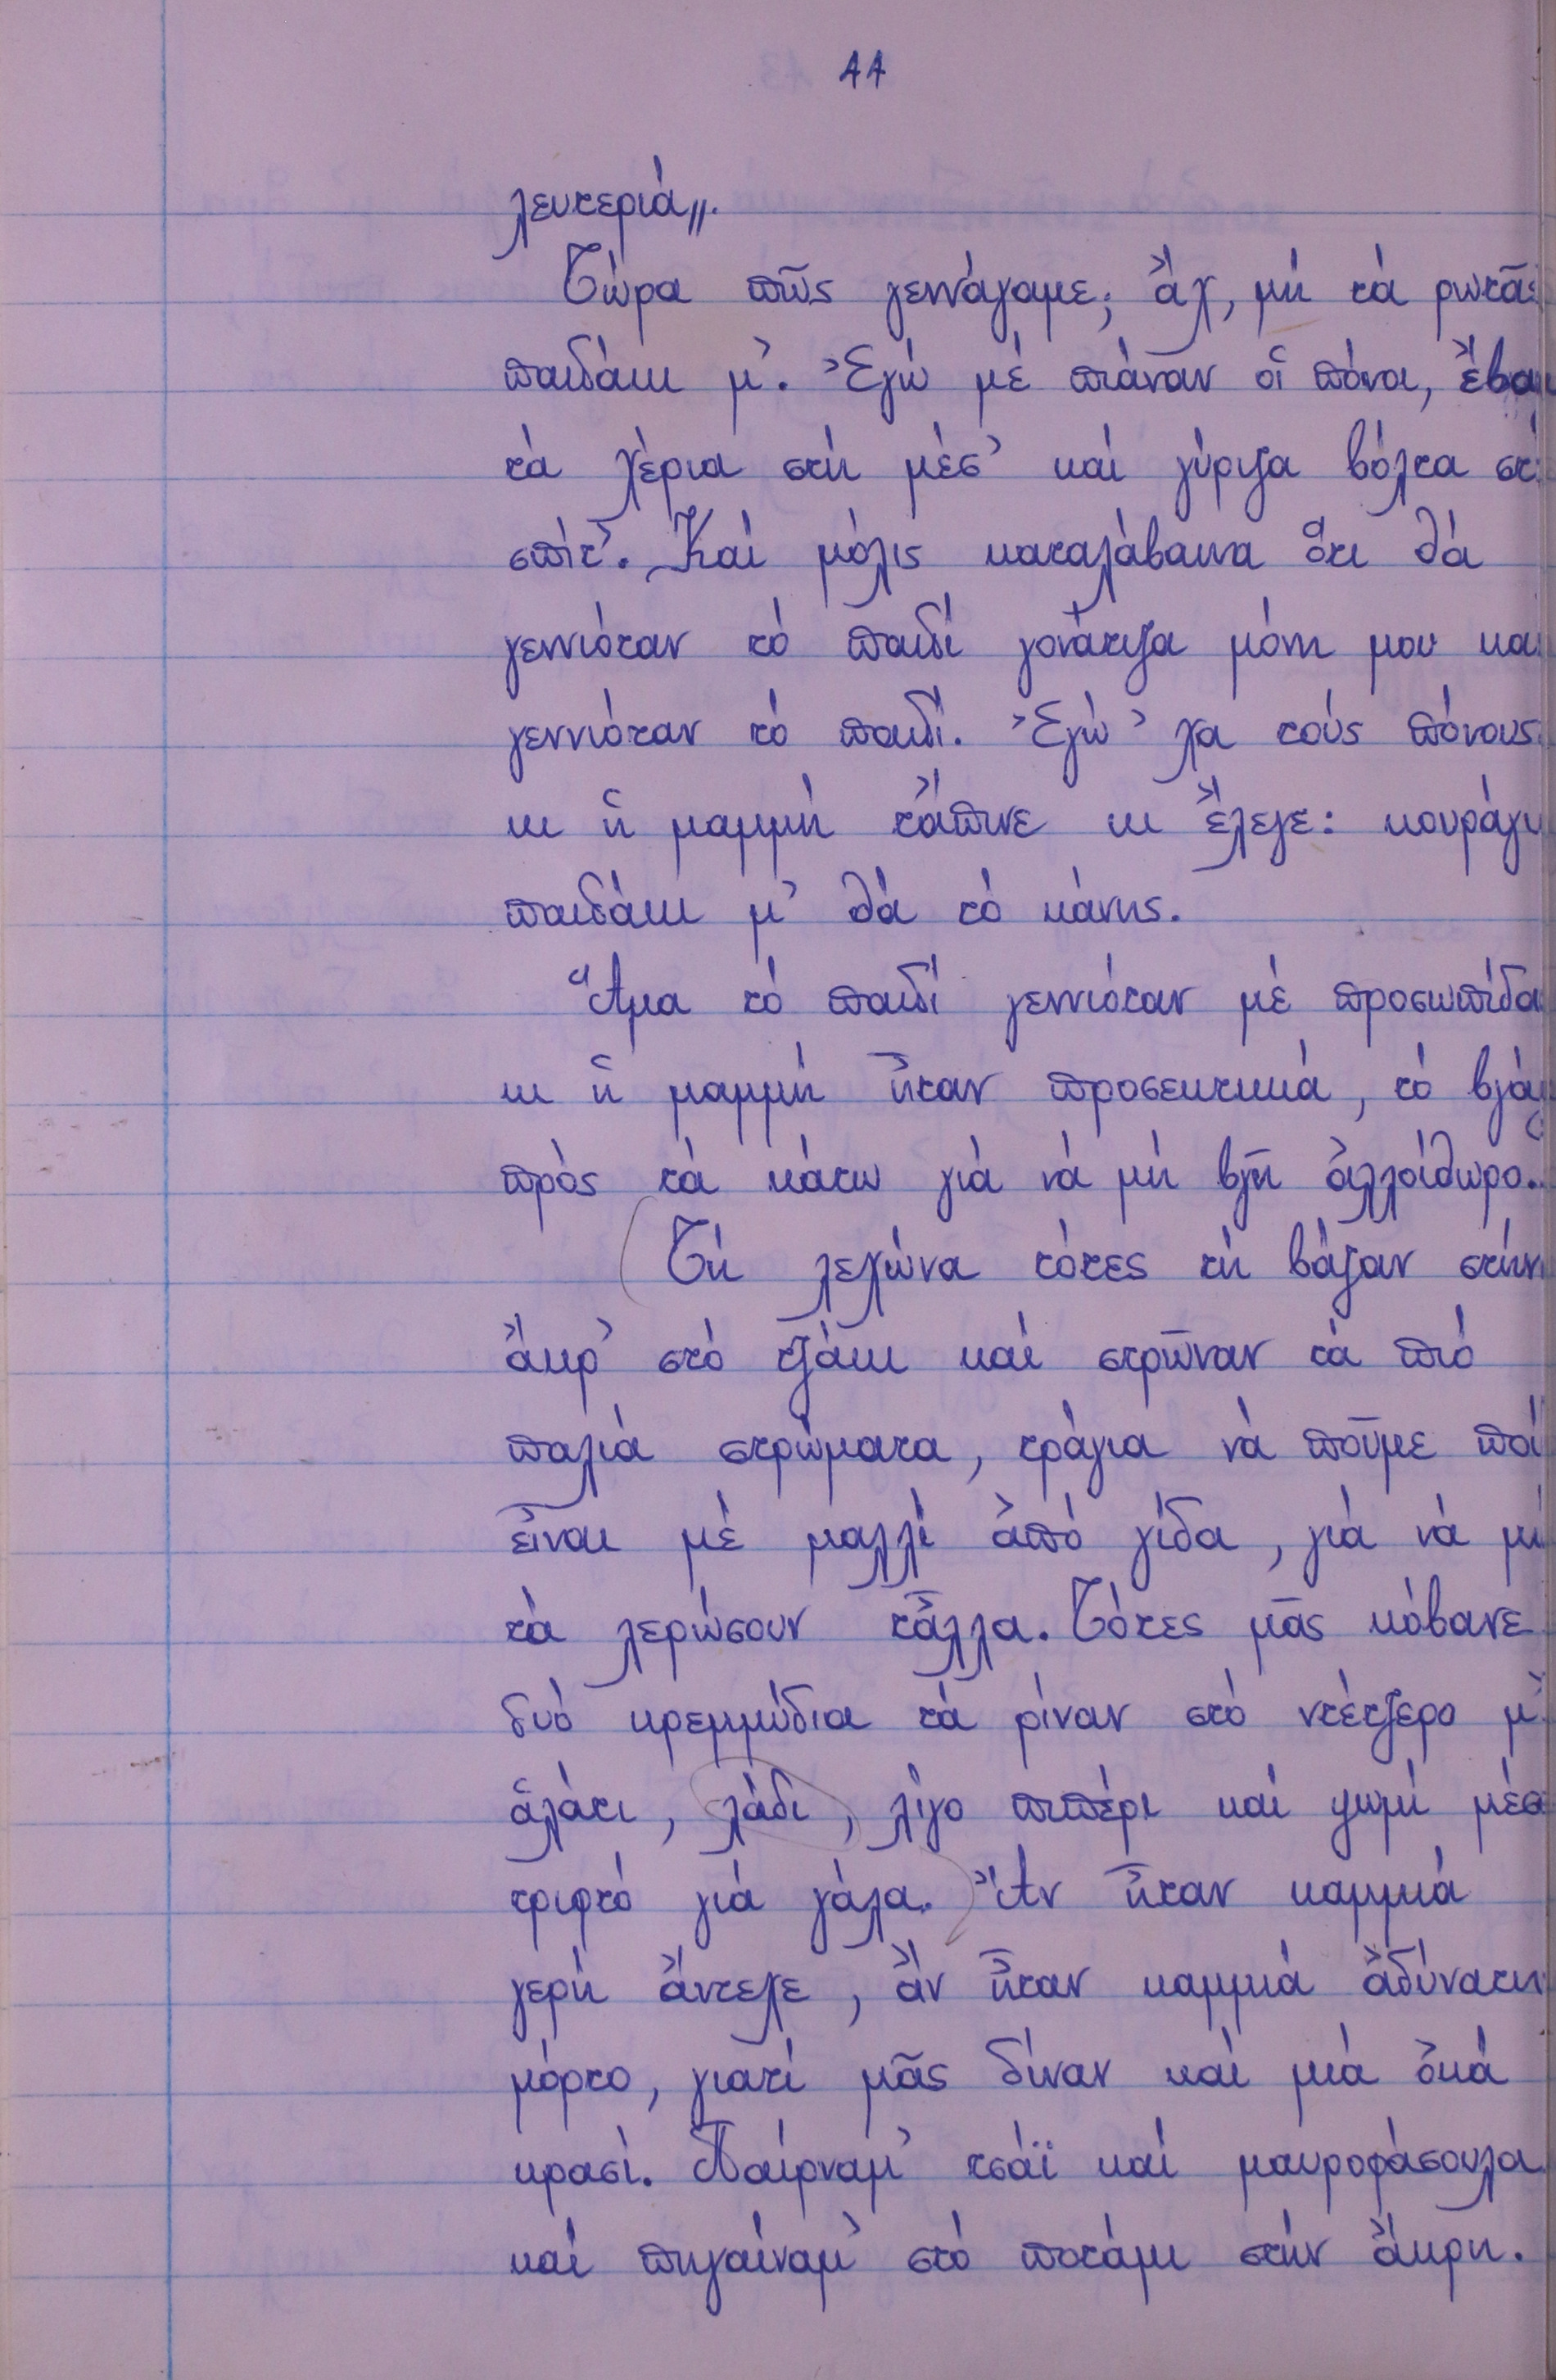 11
λευτεριά„.
Τώρα πῶς γεννάγαμε; ἄχ, μή τά ρωτᾶς
παιδάκι μ'. Ἐγώ μέ πιάναν οἱ πόνοι, ἔβαζα
τά χέρια στή μέσ' καί γύριζα βόλτα στό
σπίτ'. Καί μόλις καταλάβαινα ὅτι θά
γεννιόταν τό παιδί γονάτιζα μόνη μου και
γεννιόταν τό παιδί. Ἐγώ 'χα τούς πόνους
κι ἡ μαμμή τἄπινε κι ἔλεγε: κουράγιο
παιδάκι μ' θά τό κάνης.
Ἅμα τό παιδί γεννιόταν μέ προσωπίδα
κι ἡ μαμμή ἦταν προσεκτικιά, τό βγάζε
πρός τά κάτω γιά νά μή βγῆ ἀλλοίθωρο.
Τή λεχώνα τότες τή βάζαν στήν
ἄκρ' στό τζάκι καί στρῶναν τά πιό
παλιά στρώματα, τράγια νά ποῦμε πού
εἶναι μέ μαλλί ἀπό γίδα, γιά νά μή
τά λερώσουν τἆλλα. Τότες μᾶς κόβανε
δυό κρεμμύδια τά ρίναν στό ντέτζερο μ'
ἁλάτι, λάδι, λίγο πιπέρι καί ψωμί μέσα
τριφτό γιά γάλα. Ἄν ἦταν καμμιά
γερή ἄντεχε, ἄν ἦταν καμμιά ἀδύνατη
μόρτο, γιατί μᾶς δίναν καί μιά ὀκά
κρασί. Παίρναμ' τσάϊ καί μαυροφάσουλα
καί πηγαίναμ' στό ποτάμι στήν ἄκρη.